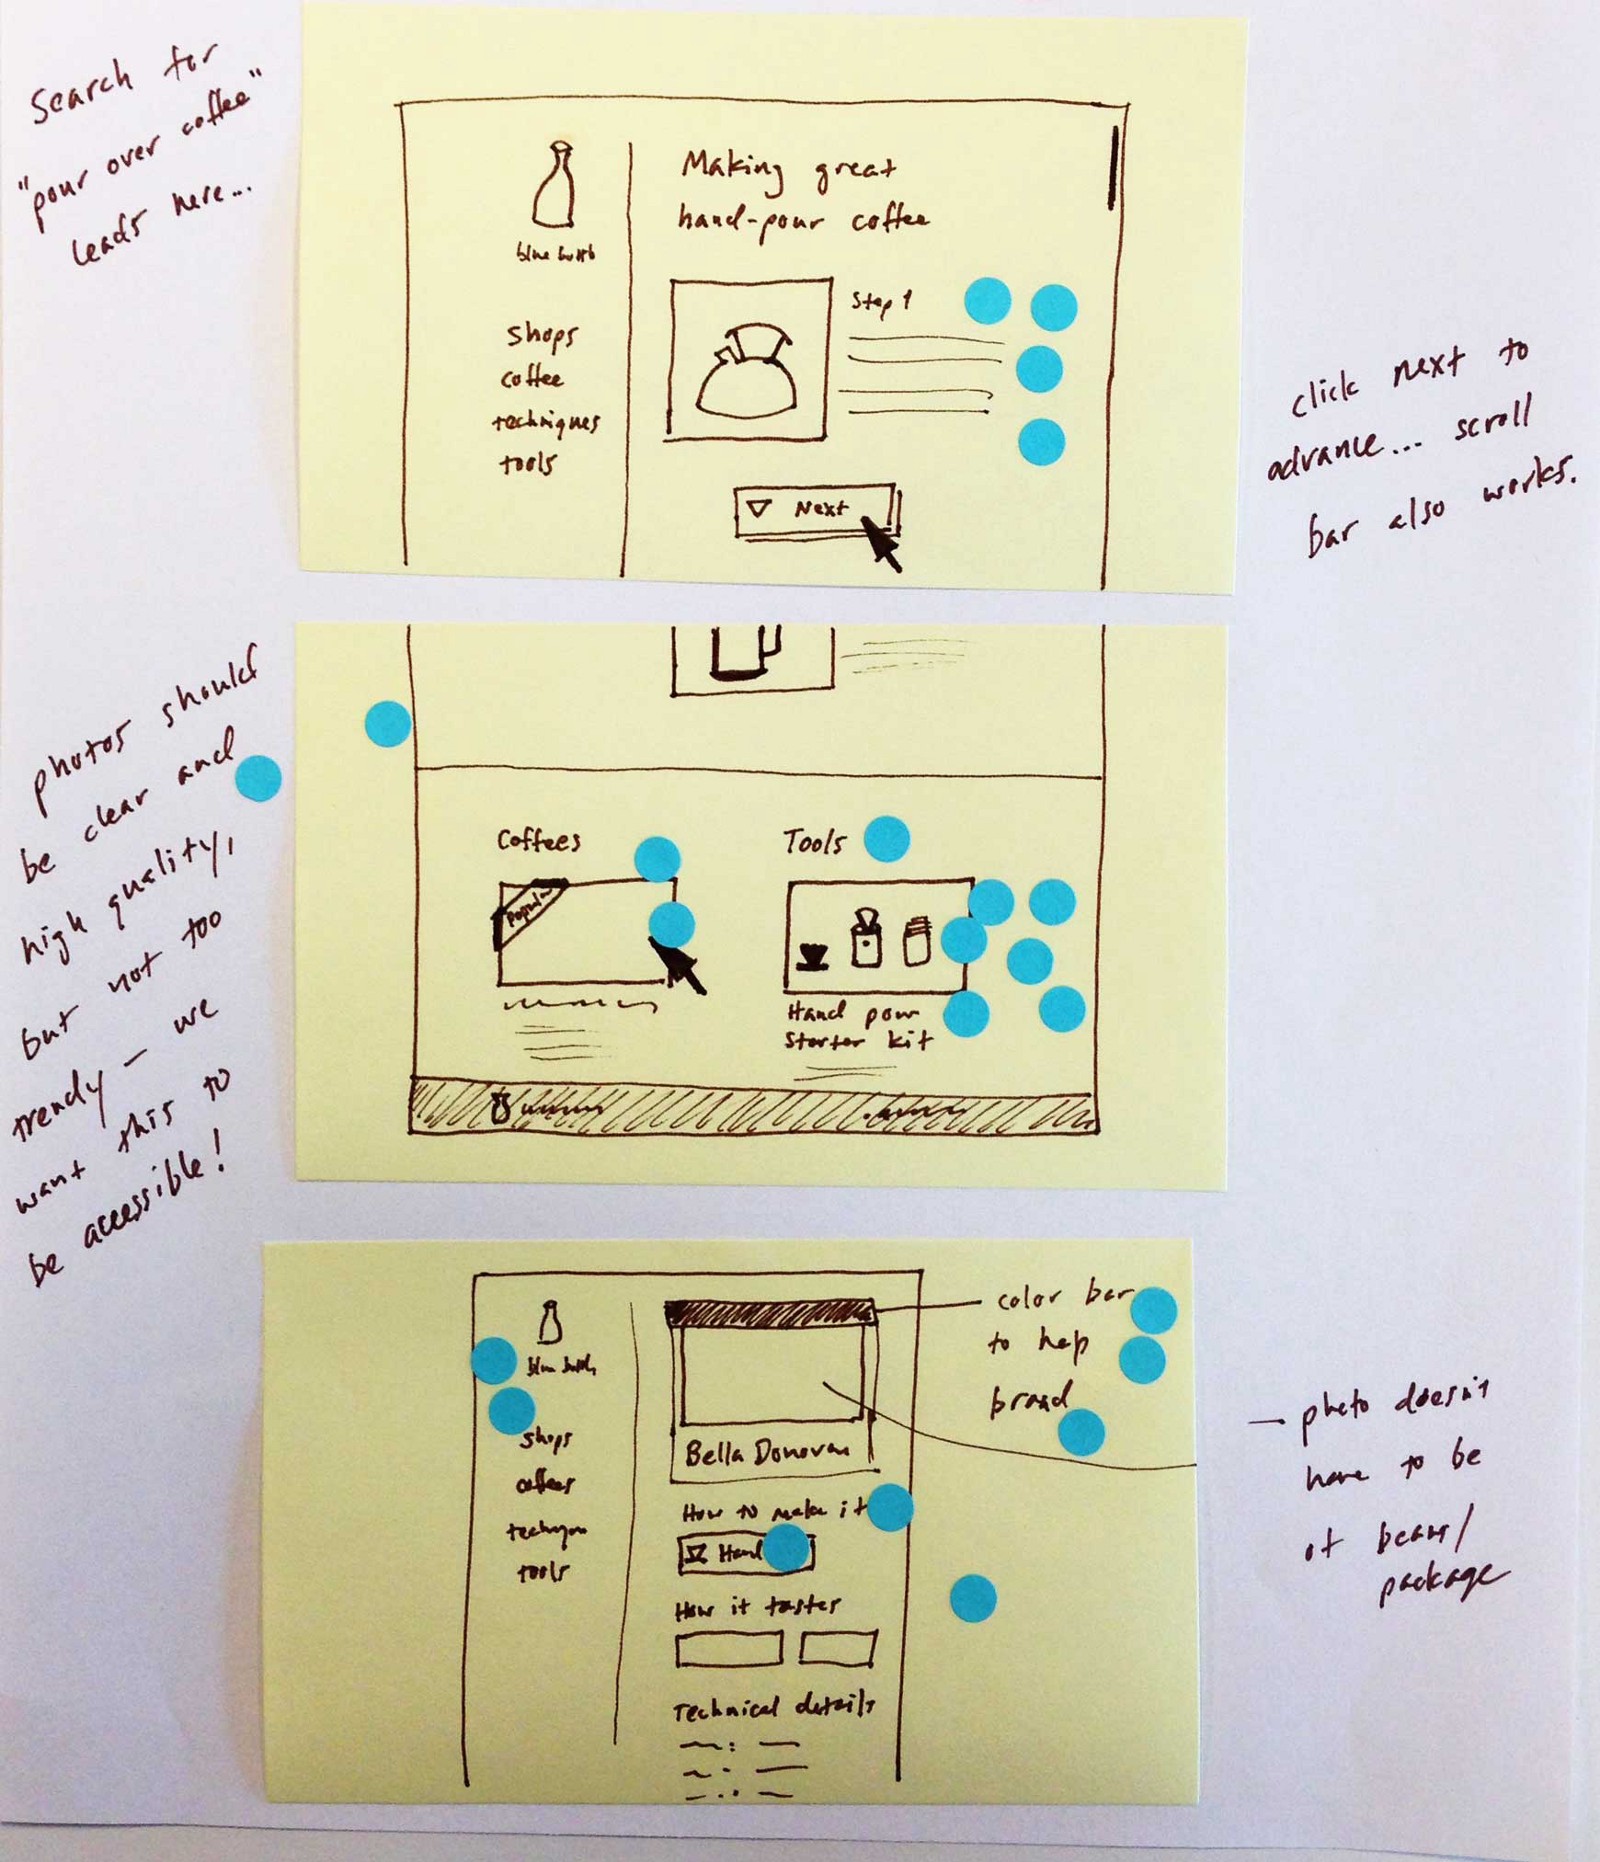 Search for
"pour over coffee"
leads here...
Making great
hand-pour coffee
blue bottle
Step 1
shops
coffee
techniques
tools
Next
click next to
advance... scroll
bar also works.
photos should
be clear and
high quality,
but not too
trendy - we
want this to
be accessible!
Coffees
Popular
Tools
Hand pour
starter kit
blue bottle
shops
coffees
tools
color bar
to help
brand
Bella Donovan
How to make it
Hand
How it tastes
Technical details
photo doesn't
have to be
of beans/
package